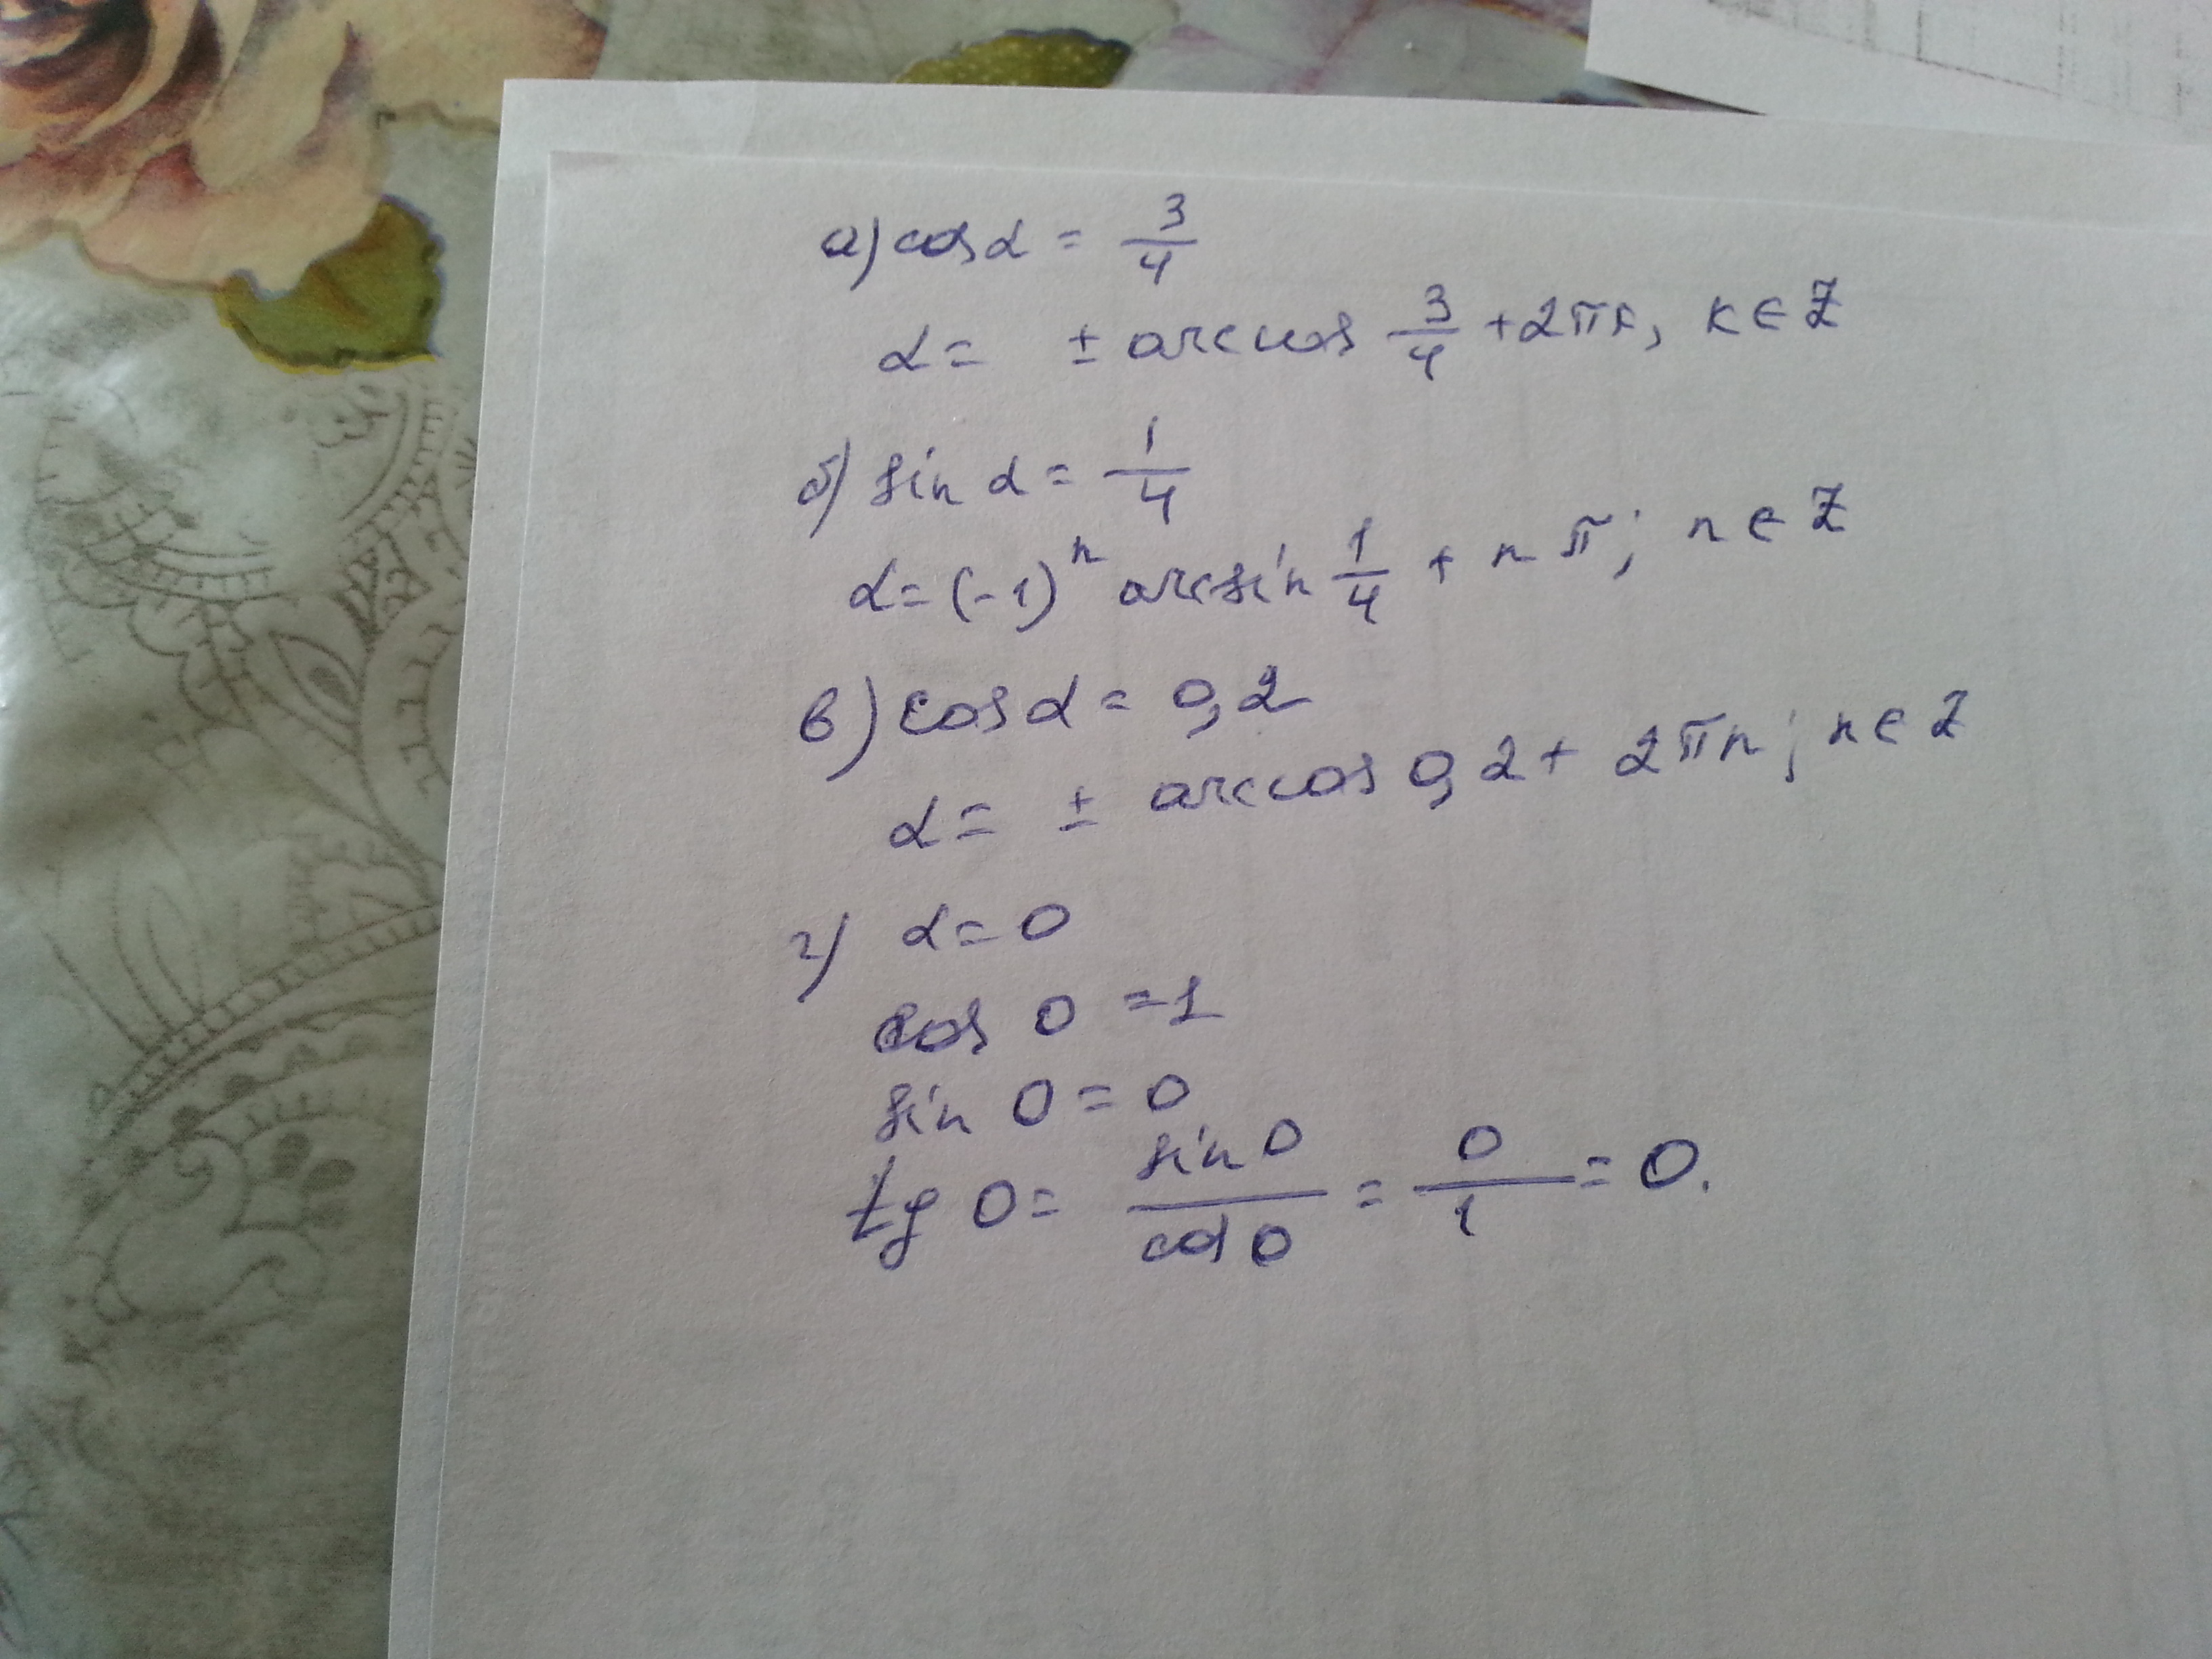 а) cos α = 3/4
α = ± arccos 3/4 + 2πк, к ∈ Z
б) sin α = 1/4
α = (-1)ⁿ arcsin 1/4 + n π; n ∈ Z
в) cos α = 0,2
α = ± arccos 0,2 + 2πn; n ∈ Z
г) α = 0
cos 0 = 1
sin 0 = 0
tg 0 = sin 0/cos 0 = 0/1 = 0.